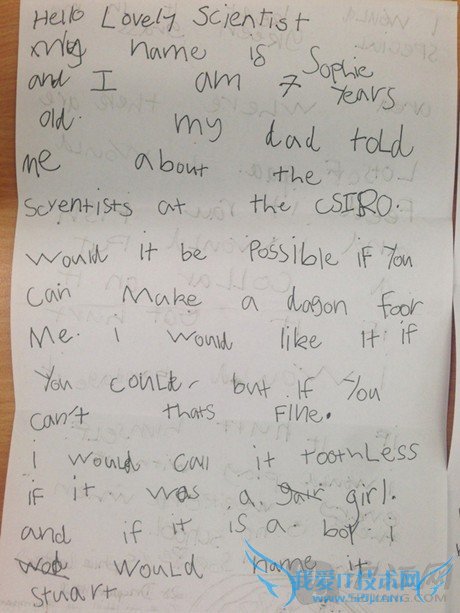 Hello Lovely Scientist
my name is Sophie
and I am 7 Years
old. my dad told
me about the
Scientists at the CSIRO.
Would it be Possible if You
can Make a dagon foor
Me. I would like it if
You could, but if You
can't thats Fine.
i would call it toothless
if it was a girl.
and if it is a boy i
would name it
Stuart
我爱IT技术网